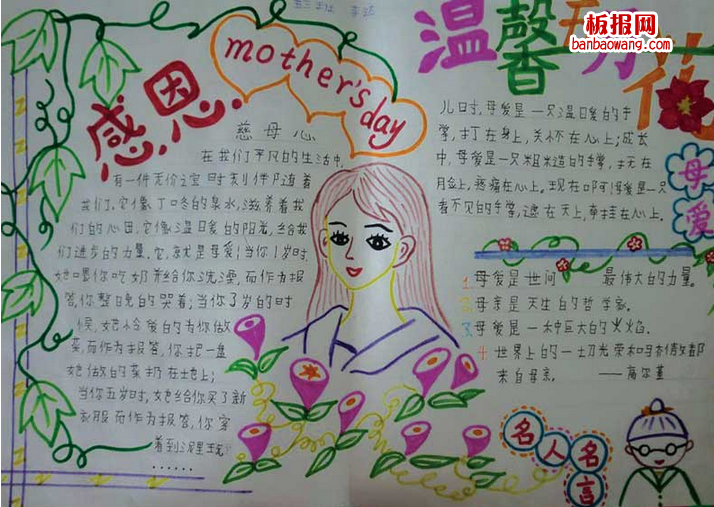 感恩
mother's day
慈母心
在我们平凡的生活中,
有一件无价之宝时刻伴随着
我们.它像丁咚的泉水,滋养着我
们的心田.它像温暖的阳光,给我
们进步的力量.它就是母爱!当你1岁时,
她喂你吃奶并给你洗澡,而作为报
答,你整晚的哭着;当你了岁的时
候,她怜爱的为你做
菜,而作为报答,你把一盘
她做的菜扔在地上;
当你五岁时,她给你买了新
衣服而作为报答,你穿
着到泥里玩
......
温馨
板报网
banbaowang.com
儿时,母爱是一只温暖的手
掌,打在身上,关怀在心上;成长
中,母爱是一只粗糙的手掌,抚在
脸上,疼痛在心上。现在
看不见的手掌,遮在天上,牵挂在心上。
母爱
1.母爱是世间 最伟大的力量。
2.母亲是天生的哲学家.
3.母爱是一种巨大的火焰.
4.世界上的一切光荣和骄傲都
来自母亲. ——高尔基
名人名言